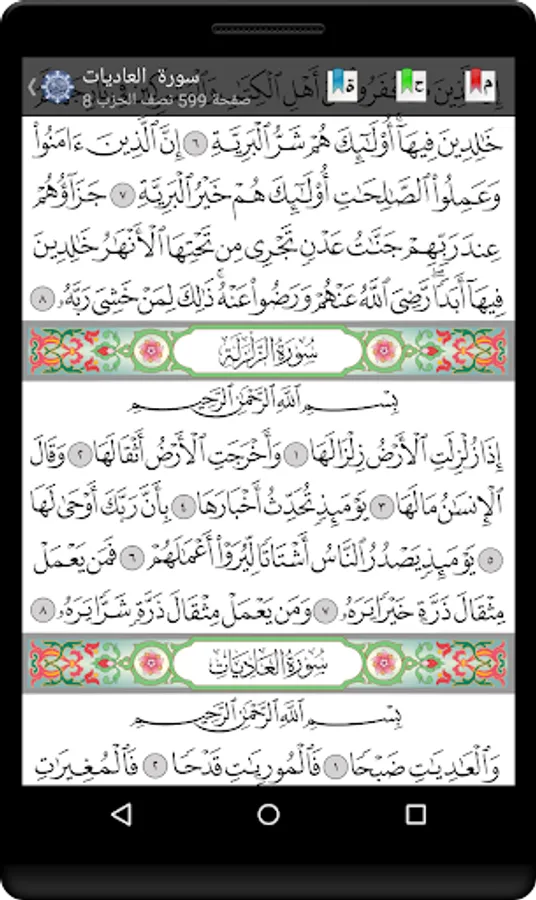 سورة العاديات
صفحة 599 نصف الحزب 8
ة
ح
م
خَٰلِدِينَ فِيهَآ أُوْلَٰٓئِكَ هُمْ شَرُّ ٱلْبَرِيَّةِ ٦ إِنَّ ٱلَّذِينَ ءَامَنُوا۟
وَعَمِلُوا۟ ٱلصَّٰلِحَٰتِ أُوْلَٰٓئِكَ هُمْ خَيْرُ ٱلْبَرِيَّةِ ٧ جَزَآؤُهُمْ
عِندَ رَبِّهِمْ جَنَّٰتُ عَدْنٍ تَجْرِى مِن تَحْتِهَا ٱلْأَنْهَٰرُ خَٰلِدِينَ
فِيهَآ أَبَدًا ۖ رَّضِىَ ٱللَّهُ عَنْهُمْ وَرَضُوا۟ عَنْهُ ۚ ذَٰلِكَ لِمَنْ خَشِىَ رَبَّهُۥ ٨
سُورَةُ الزَّلْزَلَةِ
بِسْمِ ٱللَّهِ ٱلرَّحْمَٰنِ ٱلرَّحِيمِ
إِذَا زُلْزِلَتِ ٱلْأَرْضُ زِلْزَالَهَا ١ وَأَخْرَجَتِ ٱلْأَرْضُ أَثْقَالَهَا ٢ وَقَالَ
ٱلْإِنسَٰنُ مَا لَهَا ٣ يَوْمَئِذٍ تُحَدِّثُ أَخْبَارَهَا ٤ بِأَنَّ رَبَّكَ أَوْحَىٰ لَهَا
٥ يَوْمَئِذٍ يَصْدُرُ ٱلنَّاسُ أَشْتَاتًا لِّيُرَوْا۟ أَعْمَٰلَهُمْ ٦ فَمَن يَعْمَلْ
مِثْقَالَ ذَرَّةٍ خَيْرًا يَرَهُۥ ٧ وَمَن يَعْمَلْ مِثْقَالَ ذَرَّةٍ شَرًّا يَرَهُۥ ٨
سُورَةُ العَادِيَاتِ
بِسْمِ ٱللَّهِ ٱلرَّحْمَٰنِ ٱلرَّحِيمِ
وَٱلْعَٰدِيَٰتِ ضَبْحًا ١ فَٱلْمُورِيَٰتِ قَدْحًا ٢ فَٱلْمُغِيرَٰتِ